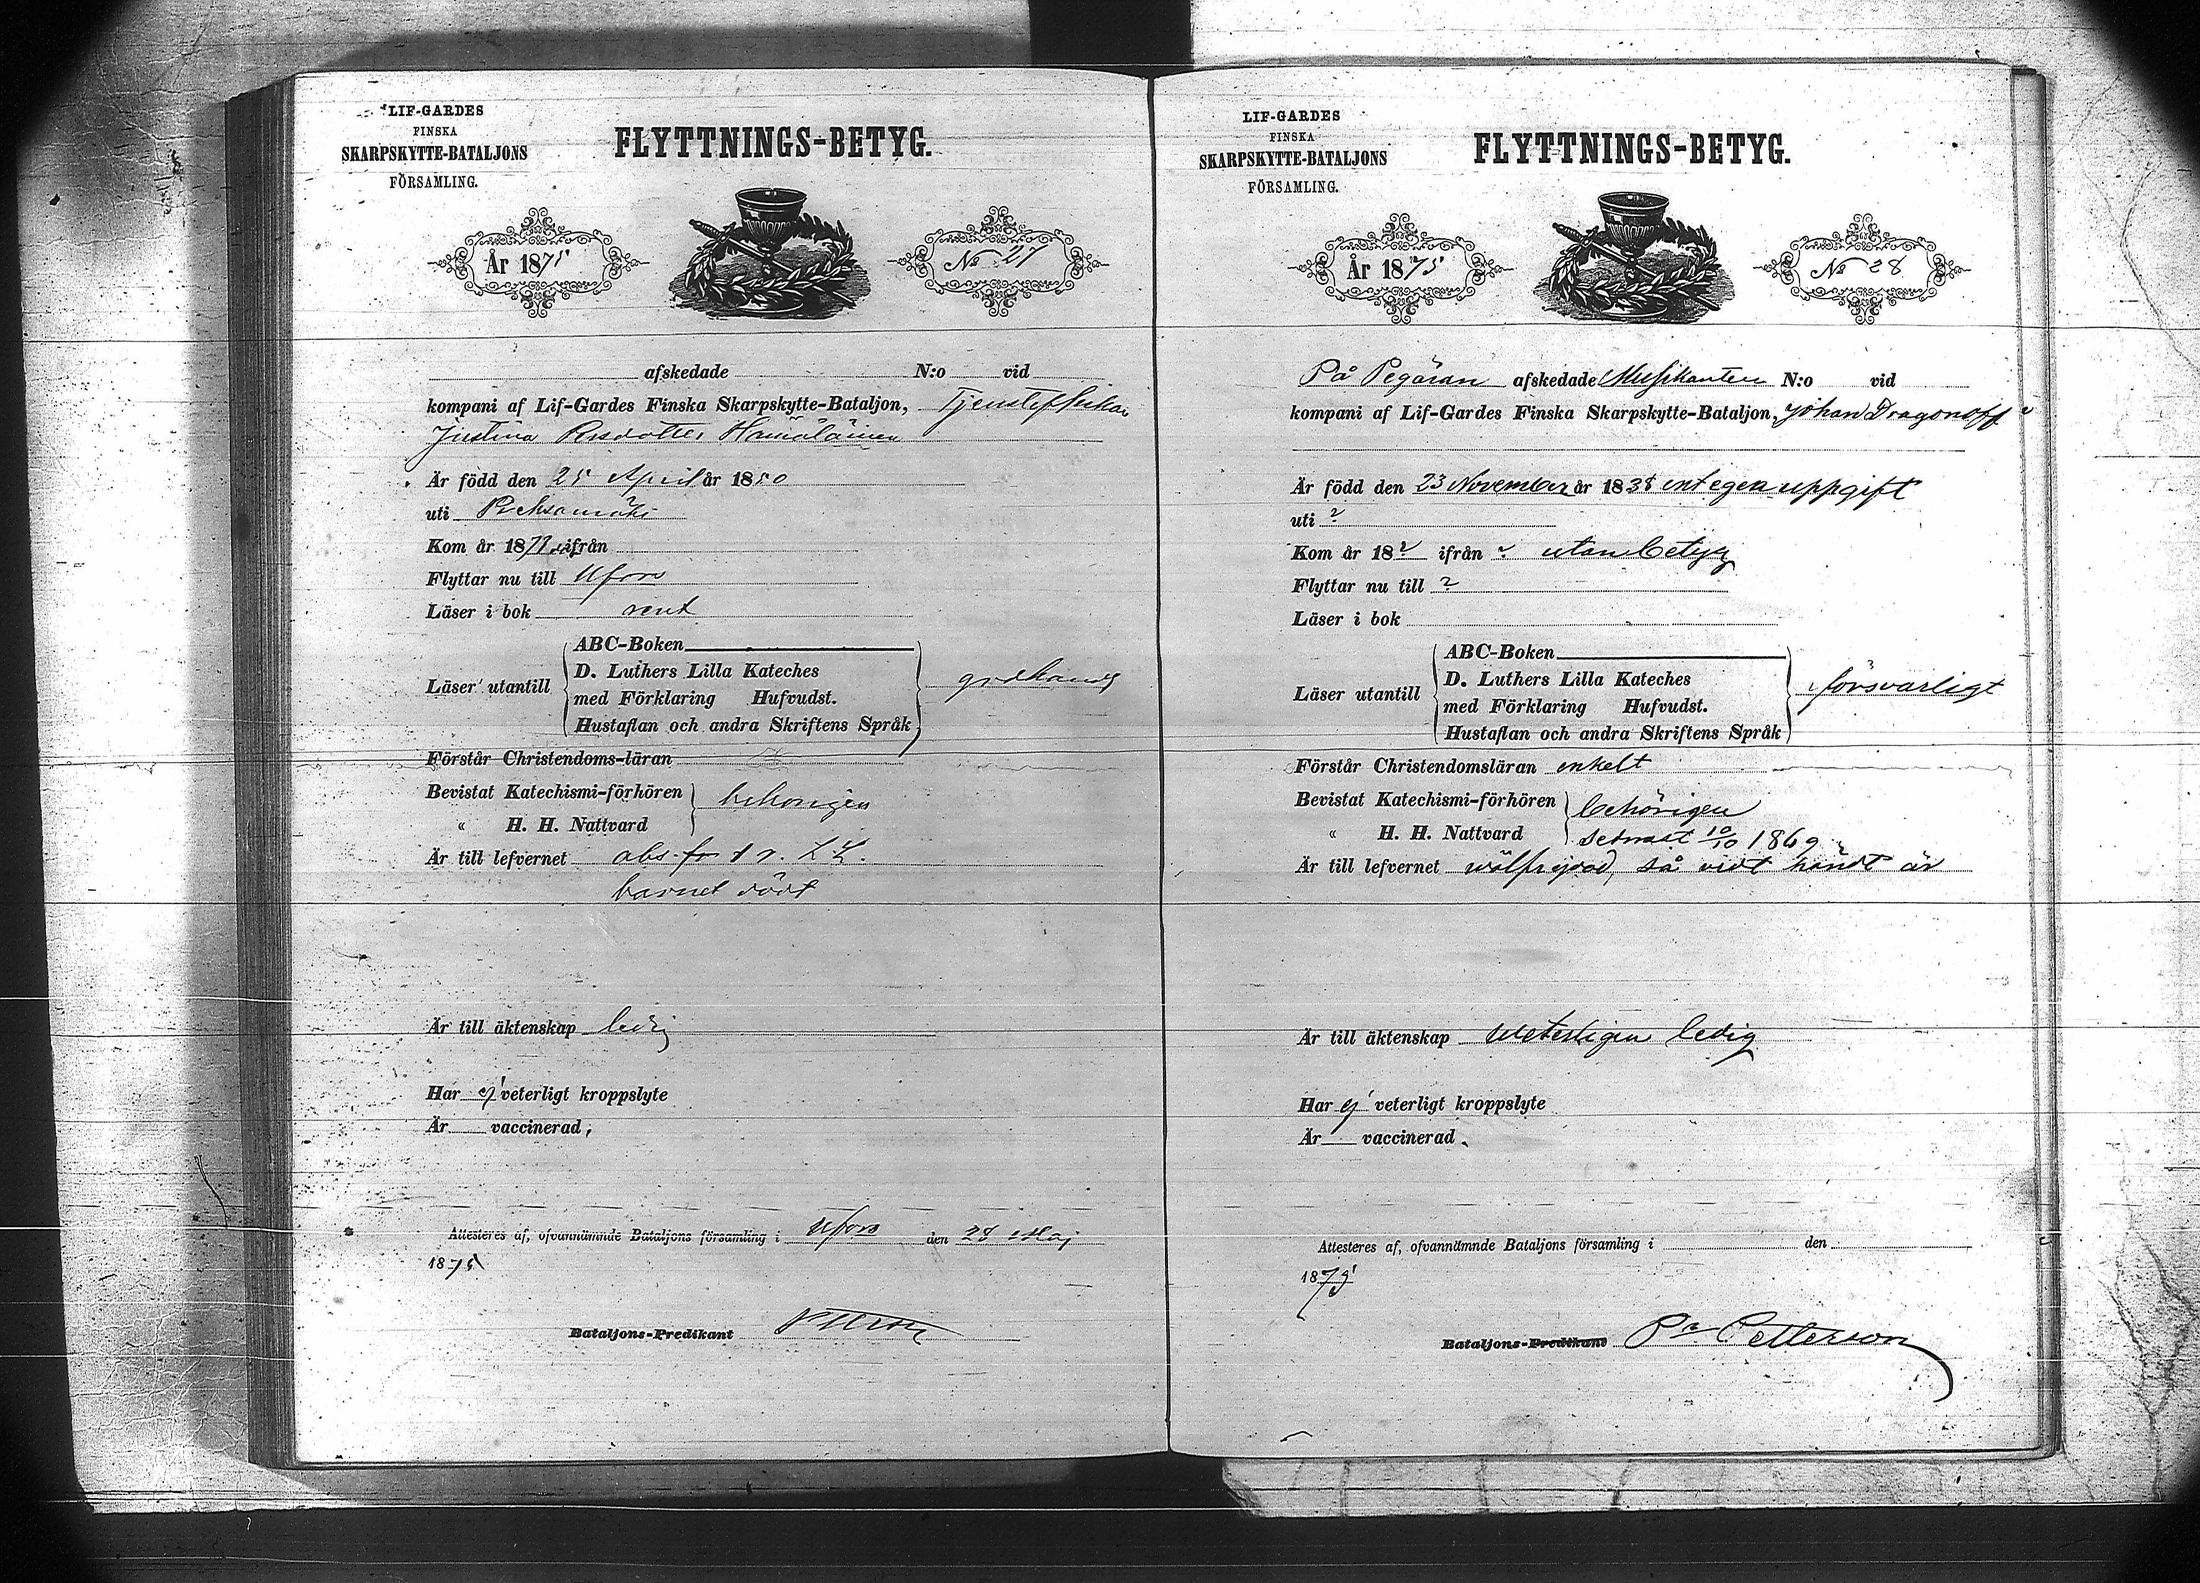 LIF-GARDES
FINSKA
SKARPSKYTTE-BATALJONS
FÖRSAMLING.
FLYTTNINGS-BETYG.
År 1875
No 27
afskedade N:o vid
kompani af Lif-Gardes Finska Skarpskytte-Bataljon,
Justina Persdotter Hämäläinen
Är född den 25 April år 1850
uti Pieksamäki
Kom år 18 ifrån
Flyttar nu till Hfors
Läser i bok rent
Läser utantill
ABC-Boken
D. Luthers Lilla Kateches
med Förklaring Hufvudst.
Hustaflan och andra Skriftens Språk
godkändt
Förstår Christendoms-läran
Bevistat Katechismi-förhören
« H. H. Nattvard
behörigen
Är till lefvernet abs. för 1 r. L. L.
barnet dödt
Är till äktenskap ledig
Har ej veterligt kroppslyte
Är vaccinerad,
Attesteres af, ofvannämnde Bataljons församling i Hfors den 28 Maj
1875
Bataljons-Predikant
LIF-GARDES
FINSKA
SKARPSKYTTE-BATALJONS
FÖRSAMLING.
FLYTTNINGS-BETYG.
År 1875
No 28
På Begäran afskedade Musikanten N:o vid
kompani af Lif-Gardes Finska Skarpskytte-Bataljon, Johan Dragonoff
Är född den 23 November år 1838 enl egen uppgift
uti ?
Kom år 18? ifrån ? utan betyg
Flyttar nu till ?
Läser i bok
Läser utantill
ABC-Boken
D. Luthers Lilla Kateches
med Förklaring Hufvudst.
Hustaflan och andra Skriftens Språk
försvarligt
Förstår Christendomsläran enkelt
Bevistat Katechismi-förhören
« H. H. Nattvard
behörigen
sednast 10/10 1869
Är till lefvernet wälfrejdad, så vidt kändt är
Är till äktenskap weterligen ledig
Har ej veterligt kroppslyte
Är vaccinerad.
Attesteres af, ofvannämnde Bataljons församling i den
1875
Bataljons-Predikant Petterson